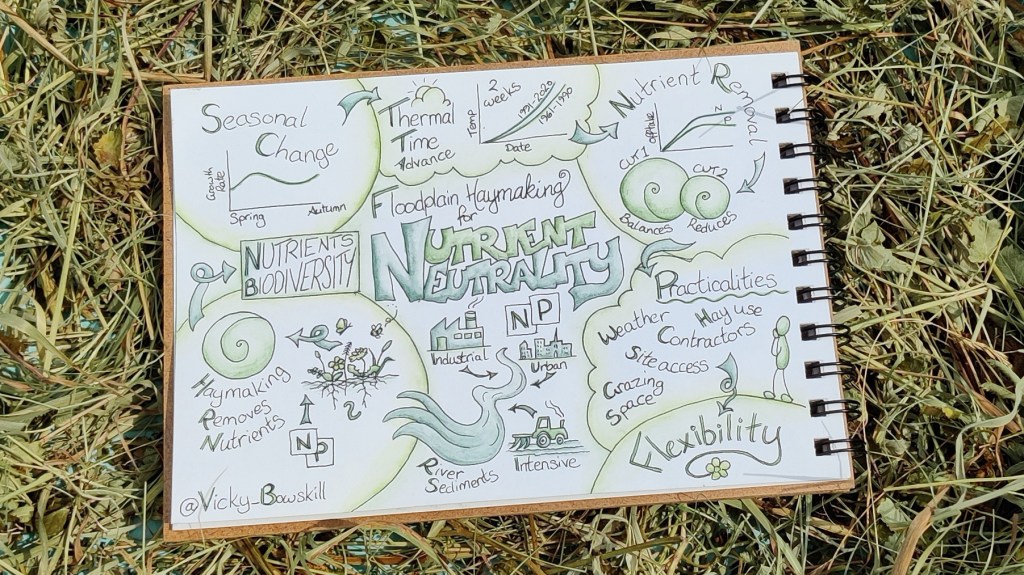 Seasonal
Change
Growth
Rate
Spring
Autumn
Thermal
Time
Advance
Temp
2
weeks
1991-2020
1961-1990
Date
Nutrient Removal
offtake
N
P
CUT 1
CUT 2
Balances
Reduces
Floodplain Haymaking
for
NUTRIENT
NEUTRALITY
NUTRIENTS
BIODIVERSITY
Haymaking
Removes
Nutrients
NP
NP
Industrial
Urban
River
Sediments
Intensive
Practicalities
Weather
Hay use
Contractors
Site access
Grazing
Space
Flexibility
@Vicky_Bowskill